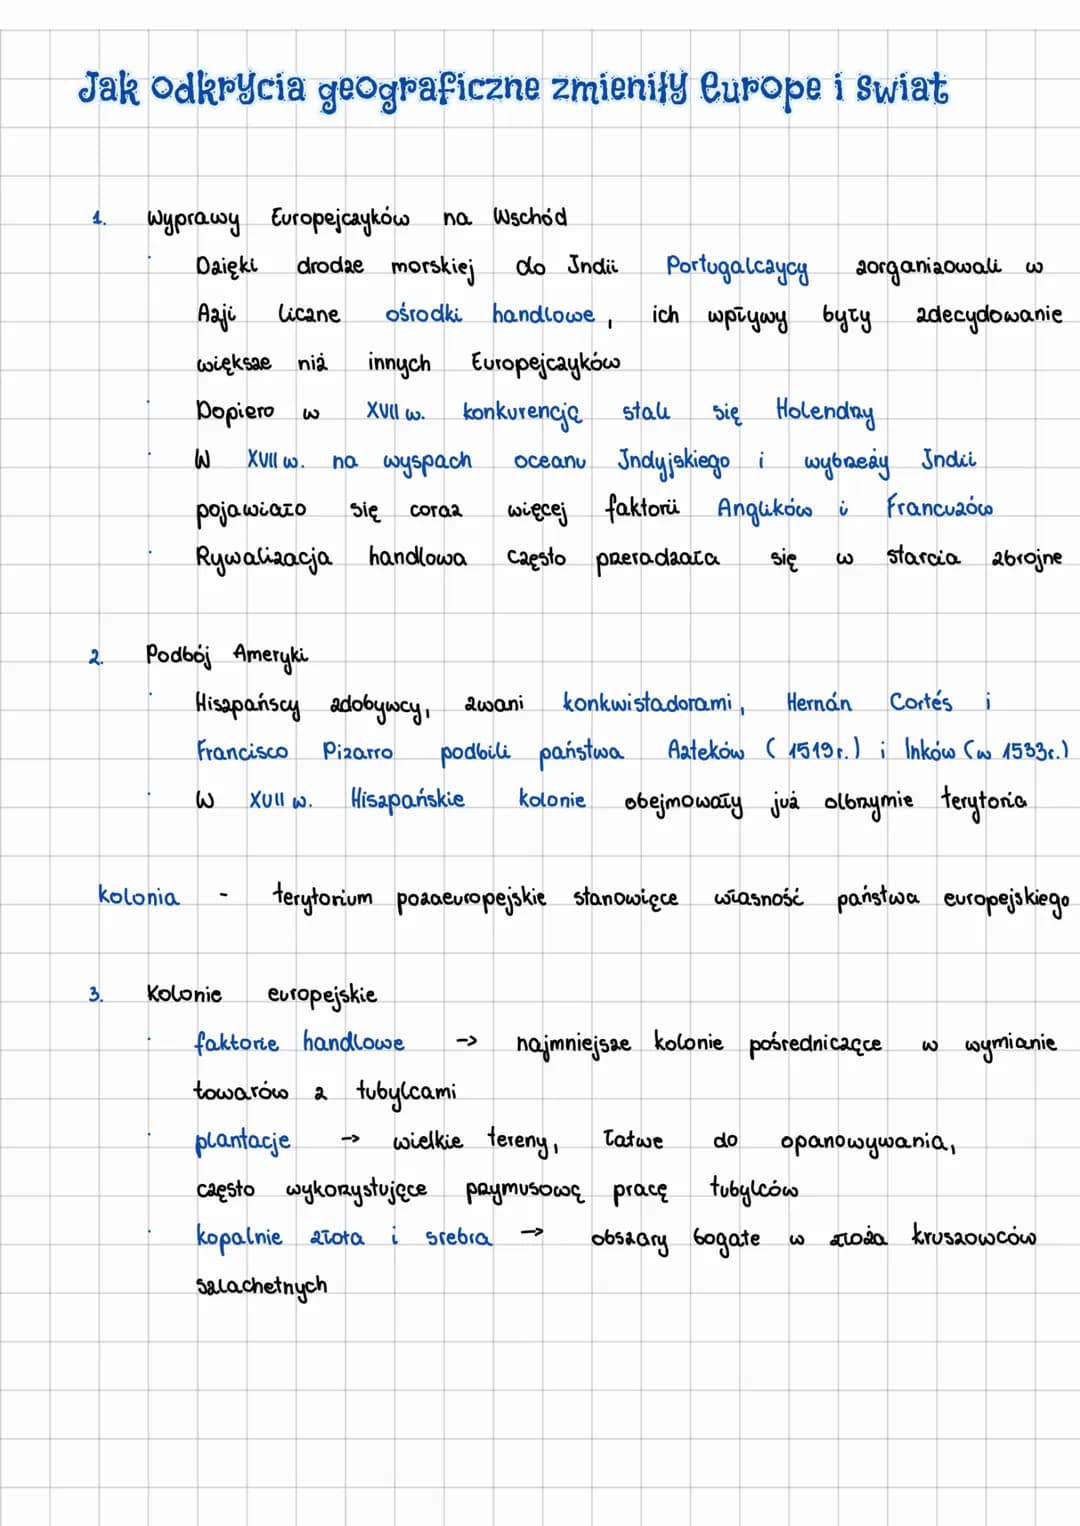 Jak odkrycia geograficzne zmieniły Europe i świat
1. Wyprawy Europejczyków na Wschód
· Dzięki drodze morskiej do Indii Portugalczycy zorganizowali w
Azji liczne ośrodki handlowe, ich wpływy były zdecydowanie
większe niż innych Europejczyków
· Dopiero w XVII w. konkurencję stali się Holendrzy
· W XVII w. na wyspach oceanu Indyjskiego i wybrzeży Indii
pojawiało się coraz więcej faktorii Anglików i Francuzów
· Rywalizacja handlowa często przeradzała się w starcia zbrojne
2. Podbój Ameryki
· Hiszpańscy zdobywcy, zwani konkwistadorami, Hernán Cortés i
Francisco Pizarro podbili państwa Azteków (1519r.) i Inków (w 1533r.)
· W XVII w. Hiszpańskie kolonie obejmowały już olbrzymie terytoria
kolonia - terytorium pozaeuropejskie stanowięce własność państwa europejskiego
3. Kolonie europejskie
· faktorie handlowe -> najmniejsze kolonie pośredniczęce w wymianie
towarów z tubylcami
· plantacje -> wielkie tereny, łatwe do opanowywania,
często wykorzystujęce przymusowę pracę tubylców
· kopalnie złota i srebra -> obszary bogate w złoża kruszowców
szlachetnych